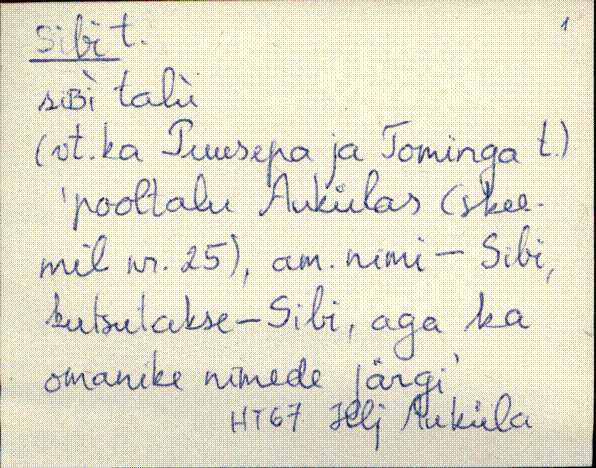 Sibi t. 1
siʙì talù
(vt. ka Puusepa ja Tominga t.)
'pooltalu Aukülas (skee-
mil nr. 25), am. nimi – Sibi,
kutsutakse – Sibi, aga ka
omanike nimede järgi'
HT67 Hlj Auküla